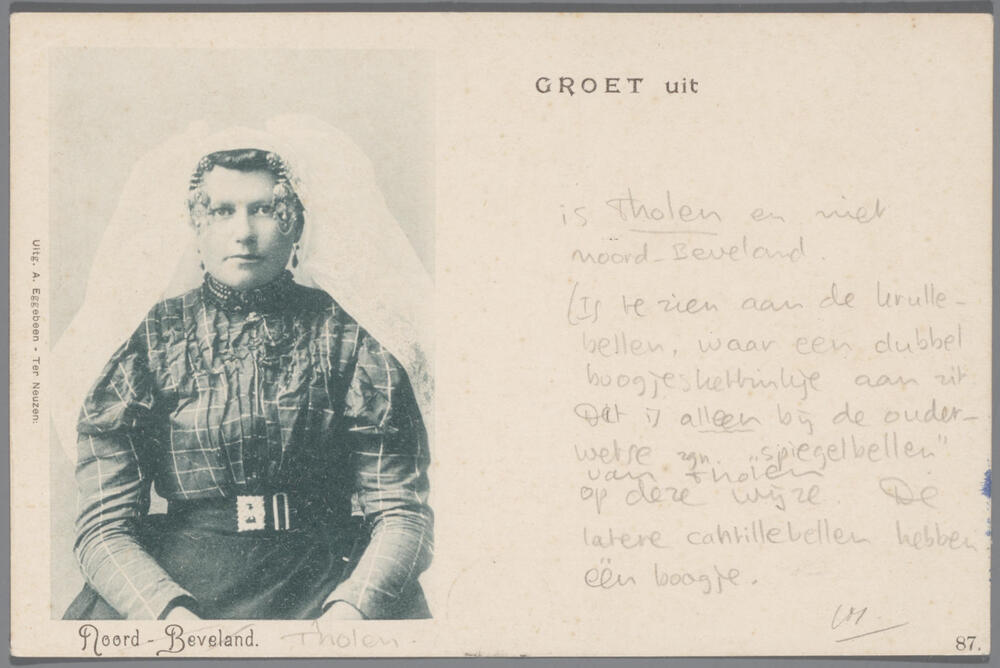 GROET uit
is Tholen en niet
noord-Beveland.
(Is te zien aan de krulle-
bellen, waar een dubbel
boogjeskettinkje aan zit
Dit is alleen bij de ouder-
wetse zgn. "spiegelbellen"
van Tholen
op deze wijze. De
latere cantillebellen hebben
één boogje.
Uitg. A. Eggebeen - Ter Neuzen:
Noord-Beveland. Tholen.
87.